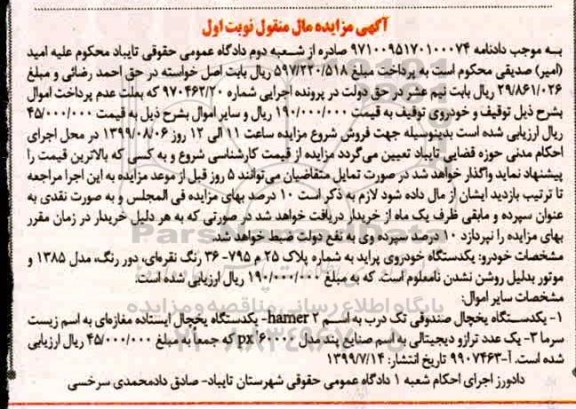 آگهی مزایده مال منقول نوبت اول
به موجب دادنامه ۹۷۱۰۰۹۵۱۷۰۱۰۰۰۷۴ صادره از شعبه دوم دادگاه عمومی حقوقی تایباد محکوم علیه امید
(امیر) صدیقی محکوم است به پرداخت مبلغ ۵۹۷/۲۲۰/۵۱۸ ریال بابت اصل خواسته در حق احمد رضائی و مبلغ
۲۹/۸۶۱/۰۲۶ ریال بابت نیم عشر در حق دولت در پرونده اجرایی شماره ۹۷۰۴۶۲/۲۰ که بعلت عدم پرداخت اموال
بشرح ذیل توقیف و خودروی توقیف به قیمت ۱۹۰/۰۰۰/۰۰۰ ریال و سایر اموال بشرح ذیل به قیمت ۴۵/۰۰۰/۰۰۰
ریال ارزیابی شده است بدینوسیله جهت فروش شروع مزایده ساعت ۱۱ الی ۱۲ روز ۱۳۹۹/۰۸/۰۶ در محل اجرای
احکام مدنی حوزه قضایی تایباد تعیین می‌گردد مزایده از قیمت کارشناسی شروع و به کسی که بالاترین قیمت را
پیشنهاد نماید واگذار خواهد شد در صورت تمایل متقاضیان می‌توانند ۵ روز قبل از موعد مزایده به این اجرا مراجعه
تا ترتیب بازدید ایشان از مال داده شود لازم به ذکر است ۱۰ درصد بهای مزایده فی المجلس و به صورت نقدی به
عنوان سپرده و مابقی ظرف یک ماه از خریدار دریافت خواهد شد در صورتی که به هر دلیل خریدار در زمان مقرر
بهای مزایده را نپردازد ۱۰ درصد سپرده وی به نفع دولت ضبط خواهد شد.
مشخصات خودرو: یکدستگاه خودروی پراید به شماره پلاک ۲۵ م ۷۹۵- ۳۶ رنگ نقره‌ای، دور رنگ، مدل ۱۳۸۵ و
موتور بدلیل روشن نشدن نامعلوم است. که به مبلغ ۱۹۰/۰۰۰/۰۰۰ ریال ارزیابی شده است.
مشخصات سایر اموال:
۱- یکدستگاه یخچال صندوقی تک درب به اسم hamer ۲- یکدستگاه یخچال ایستاده مغازه‌ای به اسم زیست
سرما ۳- یک عدد ترازو دیجیتالی به اسم صنایع پند مدل px ۶۰۰۰۰ که جمعاً به مبلغ ۴۵/۰۰۰/۰۰۰ ریال ارزیابی
شده است. آ-۹۹۰۷۴۶۳ تاریخ انتشار: ۱۳۹۹/۷/۱۴
دادورز اجرای احکام شعبه ۱ دادگاه عمومی حقوقی شهرستان تایباد- صادق دادمحمدی سرخسی